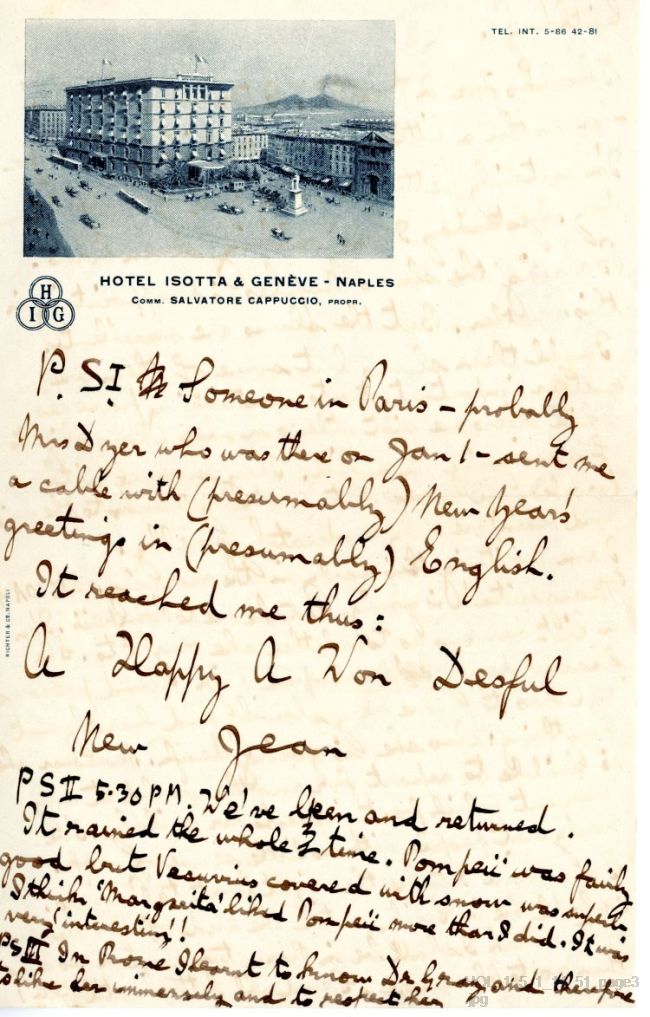 TEL. INT. 5-86 42-81
HOTEL ISOTTA & GENÈVE - NAPLES
COMM. SALVATORE CAPPUCCIO, PROPR.
H
I G
P. S I Someone in Paris – probably
Mrs Dyer who was there on Jan 1 – sent me
a cable with (presumably) New Years'
greetings in (presumably) English.
It reached me thus:
A Happy A Won Desful
New Jean
RICHTER & Co. NAPOLI
P S II 5.30 PM. We've been and returned.
It rained the whole time. Pompeii was fairly
good but Vesuvius covered with snow was superb
I think 'Margarita' liked Pompeii more than I did. It was
very 'interesting'!!
PS III In Rome I learnt to know Dr Gray and therefore
to like her immensely and to respect her
page3
.jpg